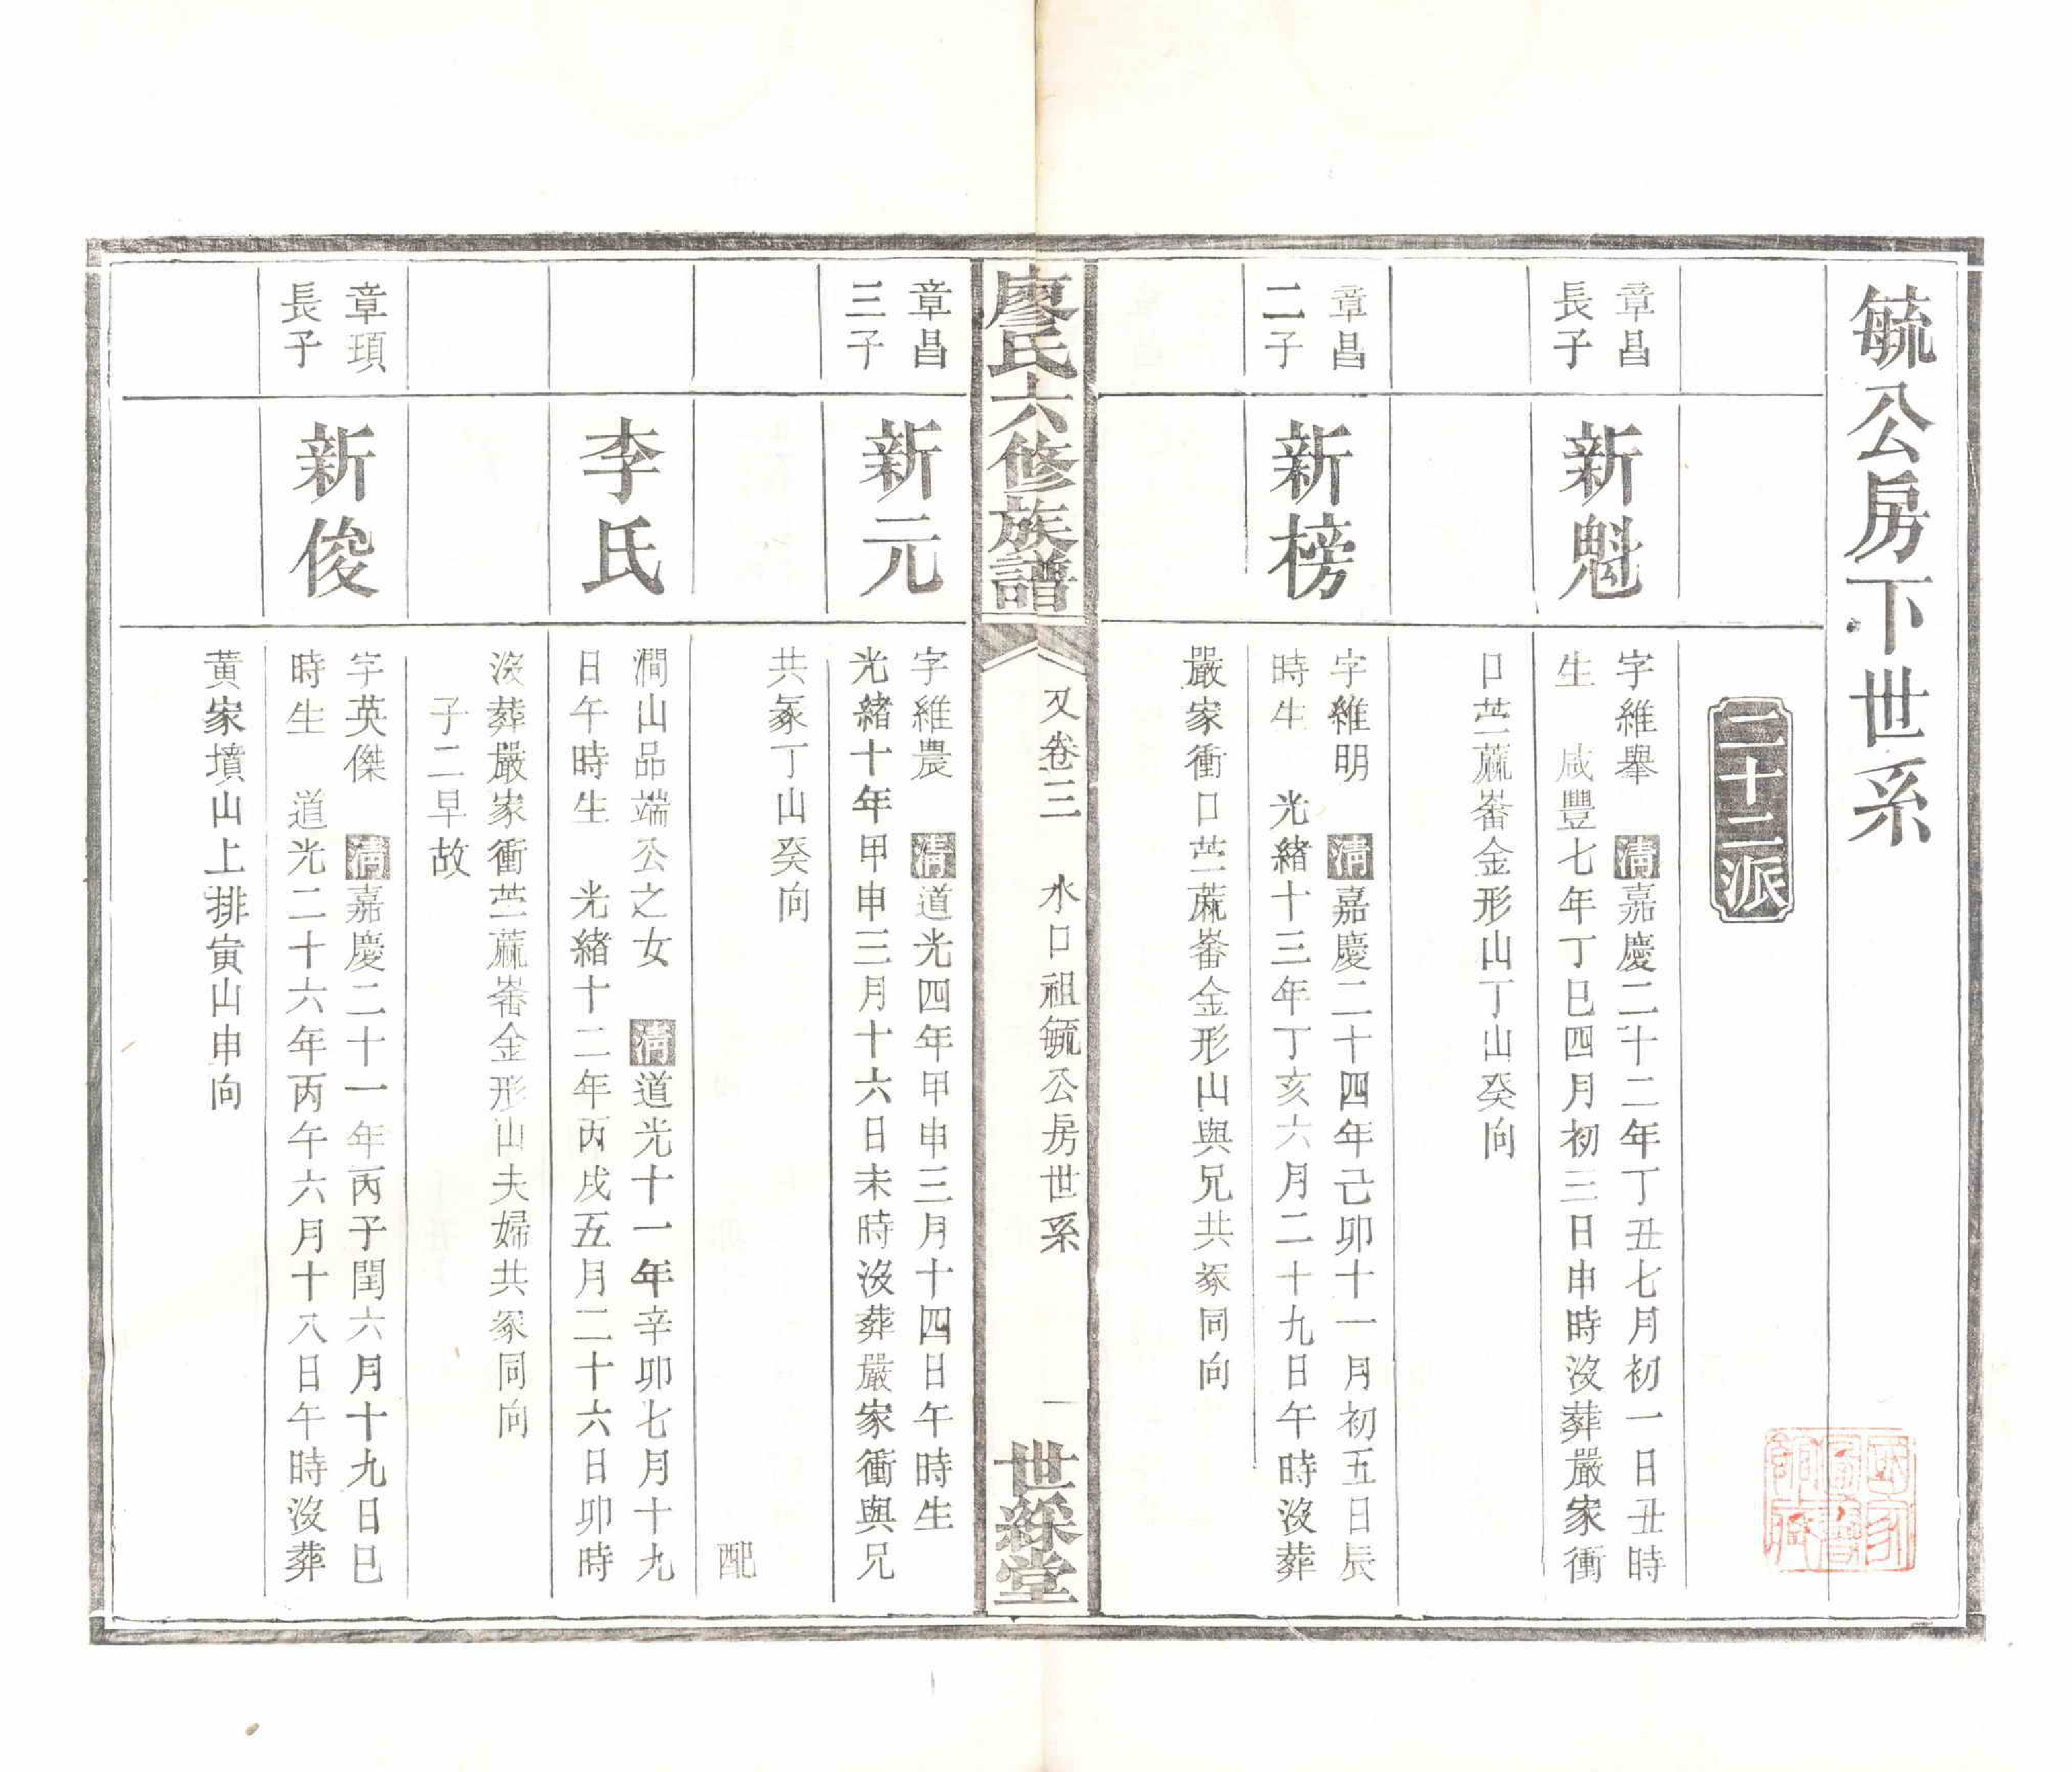 毓公房下世系
二十二派
章昌
長子
新魁
字維舉　清嘉慶二十二年丁丑七月初一日丑時
生　咸豐七年丁巳四月初三日申時沒葬嚴家衝
口苎蔴畬金形山丁山癸向
章昌
二子
新榜
字維明　清嘉慶二十四年己卯十一月初五日辰
時生　光緒十三年丁亥六月二十九日午時沒葬
嚴家衝口苎蔴畬金形山與兄共冢同向
廖氏六修族譜
又卷三　水口祖毓公房世系　一
世綵堂
章昌
三子
新元
字維農　清道光四年甲申三月十四日午時生
光緒十年甲申三月十六日未時沒葬嚴家衝與兄
共冢丁山癸向
配
李氏
澗山品端公之女　清道光十一年辛卯七月十九
日午時生　光緒十二年丙戌五月二十六日卯時
沒葬嚴家衝苎蔴畬金形山夫婦共冢同向
子二早故
章頊
長子
新俊
字英傑　清嘉慶二十一年丙子閏六月十九日巳
時生　道光二十六年丙午六月十八日午時沒葬
黃家墳山上排寅山申向